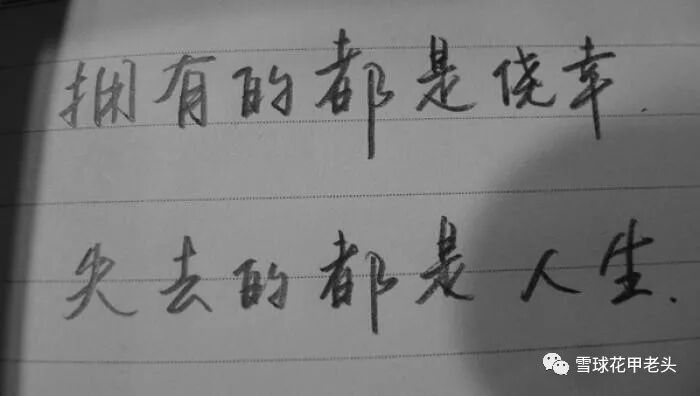 拥有的都是侥幸.
失去的都是人生.
雪球花甲老头